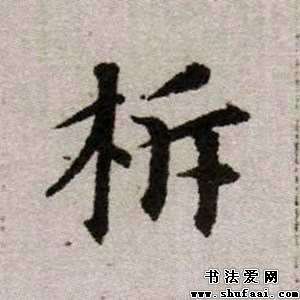 析
书法爱网
www.shufaai.com